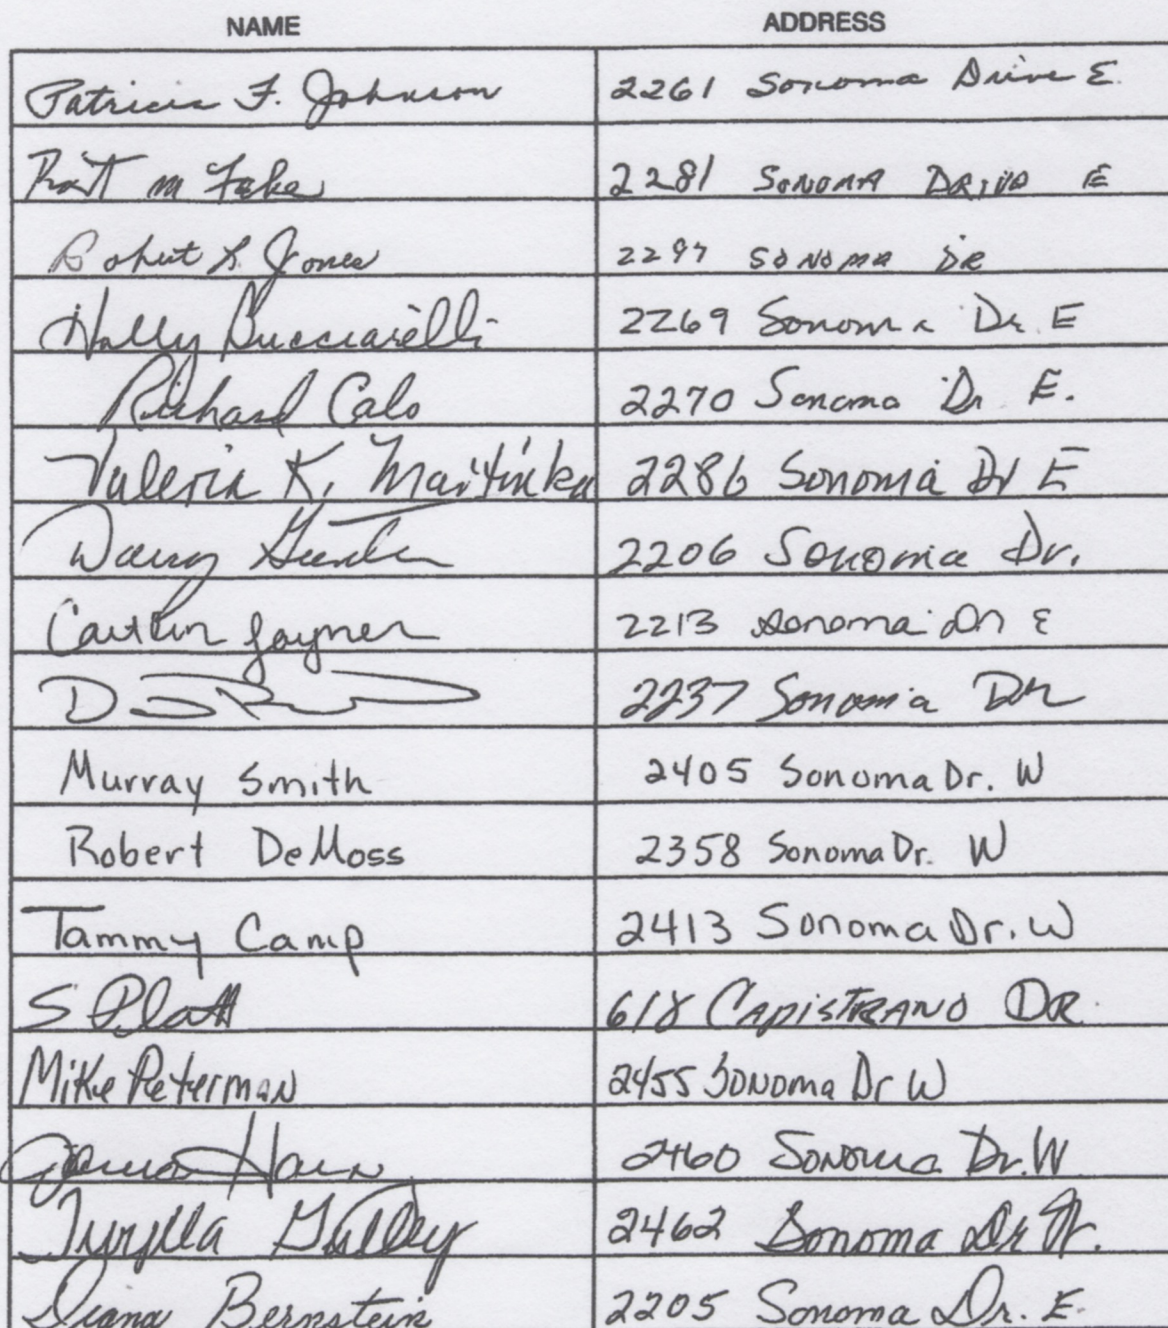 NAME ADDRESS
Patricia F. Johnson 2261 Sonoma Drive E.
m Fake 2281 SONOMA DRIVE E
Robert L. Jones 2297 SONOMA DR
Holly Bucciarelli 2269 Sonoma Dr. E
Richard Calo 2270 Sonoma Dr E.
Valerie K. Martinka 2286 Sonoma Dr E
2206 Sonoma Dr.
Caitlin Joyner 2213 Sonoma Dr E
D 2237 Sonoma Dr
Murray Smith 2405 Sonoma Dr. W
Robert DeMoss 2358 Sonoma Dr. W
Tammy Camp 2413 Sonoma Dr. W
S Platt 618 CAPISTRANO DR.
Mike Peterman 2455 Sonoma Dr W
2460 Sonoma Dr. W
2462 Sonoma Dr W.
Diana Bernstein 2205 Sonoma Dr. E.